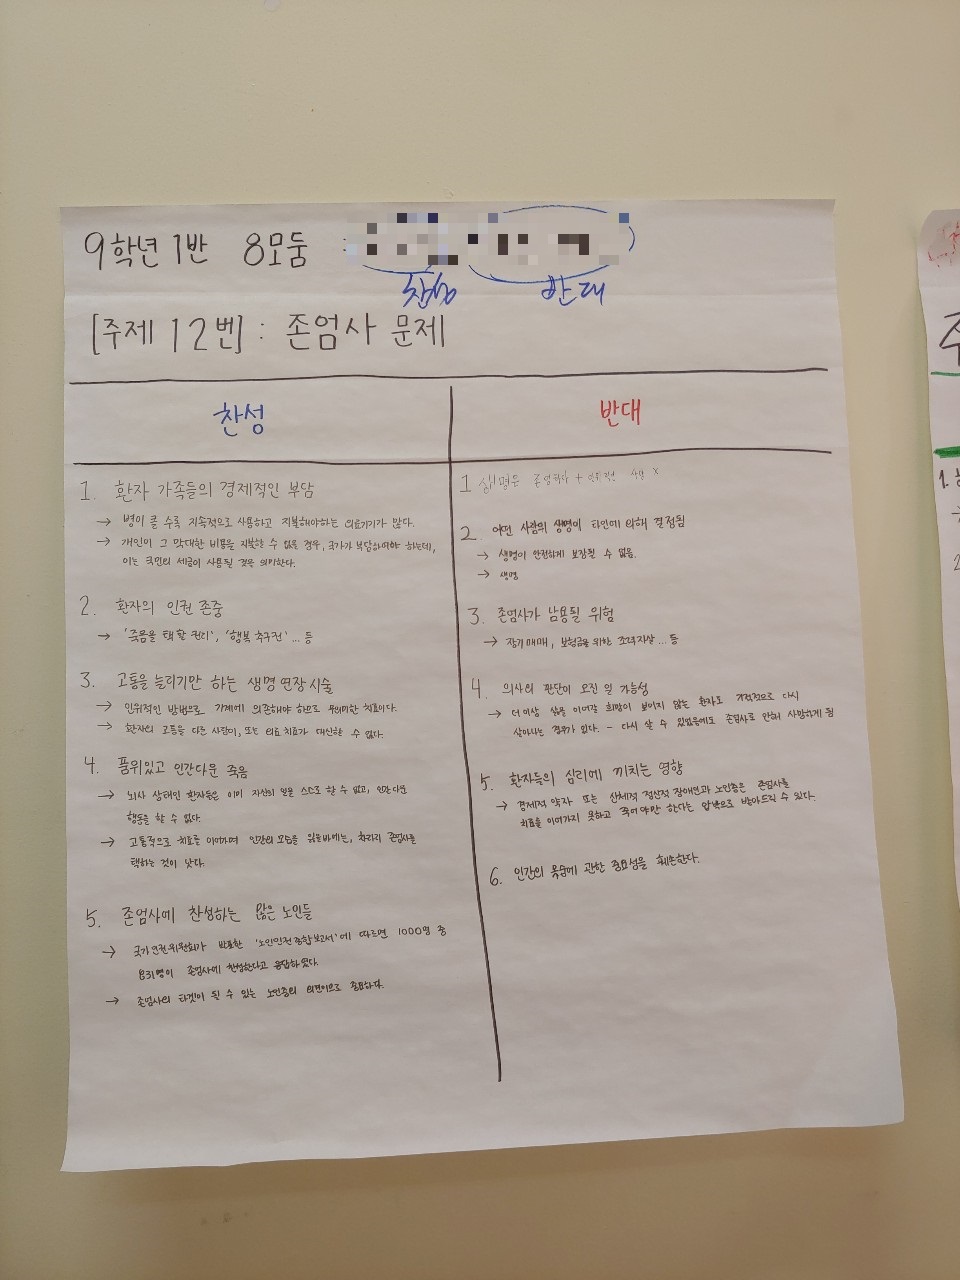 9학년 1반 8모둠 :
찬성 반대
[주제 12번] : 존엄사 문제
찬성
1. 환자 가족들의 경제적인 부담
→ 병이 클 수록 지속적으로 사용하고 지불해야하는 의료기기가 많다.
→ 개인이 그 막대한 비용을 지불할 수 없을 경우, 국가가 부담하여야 하는데,
이는 국민의 세금이 사용될 경우 의미한다.
2. 환자의 인권 존중
→ '죽음을 택할 권리', '행복 추구권' ... 등
3. 고통을 늘리기만 하는 생명 연장 시술
→ 인위적인 방법으로 기계에 의존해야 하므로 무의미한 치료이다.
→ 환자의 고통을 다른 사람이, 또는 의료 치료가 대신할 수 없다.
4. 품위있고 인간다운 죽음
→ 뇌사 상태인 환자들은 이미 자신의 일을 스스로 할 수 없고, 인간다운
행동을 할 수 없다.
→ 고통적으로 치료를 이어가며 인간의 모습을 잃을바에는, 차라리 존엄사를
택하는 것이 낫다.
5. 존엄사에 찬성하는 많은 노인들
→ 국가인권위원회가 발표한 '노인인권종합보고서'에 따르면 1000명 중
831명이 존엄사에 찬성한다고 응답하였다.
→ 존엄사의 타겟이 될 수 있는 노인층의 의견이므로 중요하다.
반대
1 생명은 + 인위적인 x
2. 어떤 사람의 생명이 타인에 의해 결정됨
→ 생명이 안전하게 보장될 수 없음.
→ 생명
3. 존엄사가 남용될 위험
→ 장기매매, 보험금을 위한 조력자살 ... 등
4. 의사의 판단이 오진 일 가능성
→ 더이상 삶을 이어갈 희망이 보이지 않는 환자도 기적적으로 다시
살아나는 경우가 있다. - 다시 살 수 있었음에도 존엄사로 인해 사망하게 됨
5. 환자들의 심리에 끼치는 영향
→ 경제적 약자 또는 신체적 정신적 장애인과 노인층은 존엄사를
치료를 이어가지 못하고 죽어야만 한다는 압박으로 받아드릴 수 있다.
6. 인간의 목숨에 관한 중요성을 훼손한다.